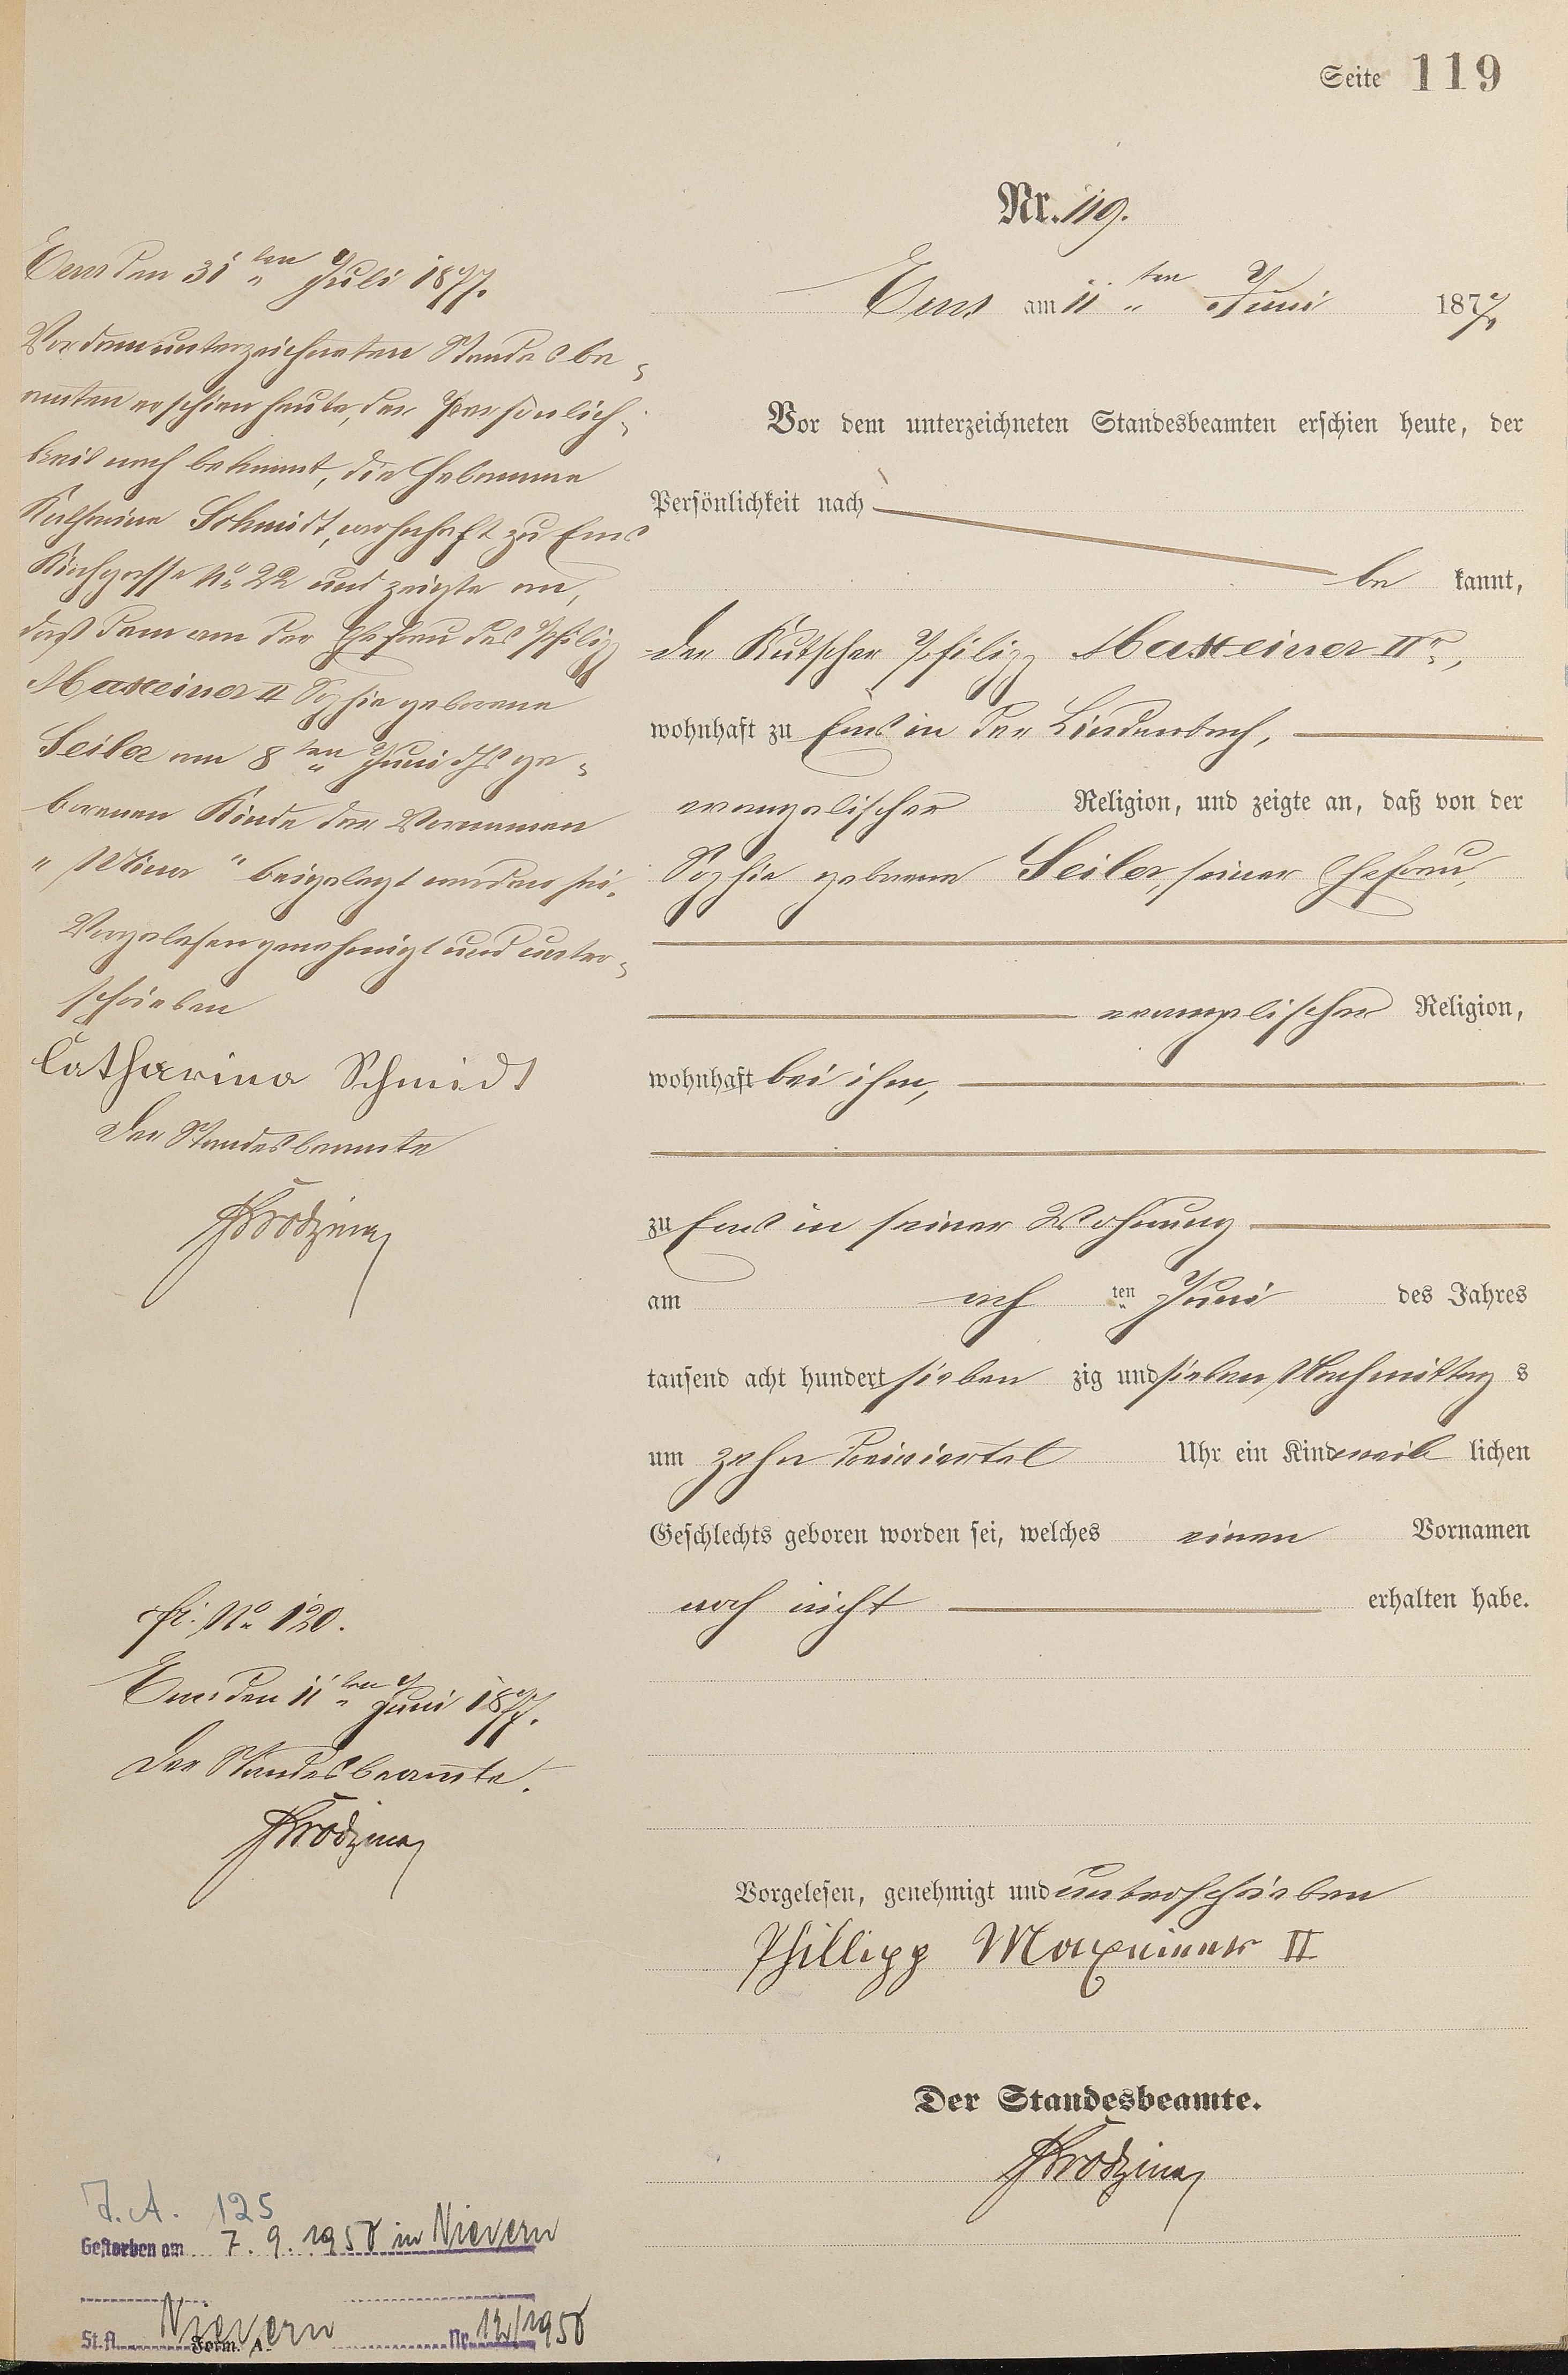 Seite 119
Nr. 119.
Ems am 11ten Juni 1877.
Vor dem unterzeichneten Standesbeamten erschien heute, der
Persönlichkeit nach
bekannt,
der Kutscher Philipp Maxeiner IIr,
wohnhaft zu Ems in der Lindenbach,
evangelischer Religion, und zeigte an, daß von der
Sophie geborene Seiler, seiner Ehefrau,
evangelischer Religion,
wohnhaft bei ihm,
zu Ems in seiner Wohnung
am achten Juni des Jahres
tausend acht hundert siebenzig und sieben Nachmittags
um zehn dreiviertel Uhr ein Kind weiblichen
Geschlechts geboren worden sei, welches einen Vornamen
noch nicht erhalten habe.
Vorgelesen, genehmigt und unterschrieben
Phillipp Maxeiner II
Der Standesbeamte.
Ems den 31ten Juli 1877.
Vor dem unterzeichneten Standesbe-
amten erschien heute, der Persönlich-
keit nach bekannt, die Hebamme
Katharine Schmidt, wohnhaft zu Ems
Kirchgasse No 22 und zeigte an,
daß dem von der Ehefrau des Philipp
Maxeiner II Sophie geborene
Seiler am 8ten Juni ds ge-
borenen Kinde der Vornamen
"Mina" beigelegt worden sei.
Vorgelesen genehmigt und unter-
schrieben
Catharina Schmidt
Der Standesbeamte
fr. No 120.
Ems den 11ten Juni 1877.
Der Standesbeamte.
J. A. 125
Gestorben am 7. 9. 1950 in Nievern
St.A. Nievern Nr. 12/1950
Form. A.